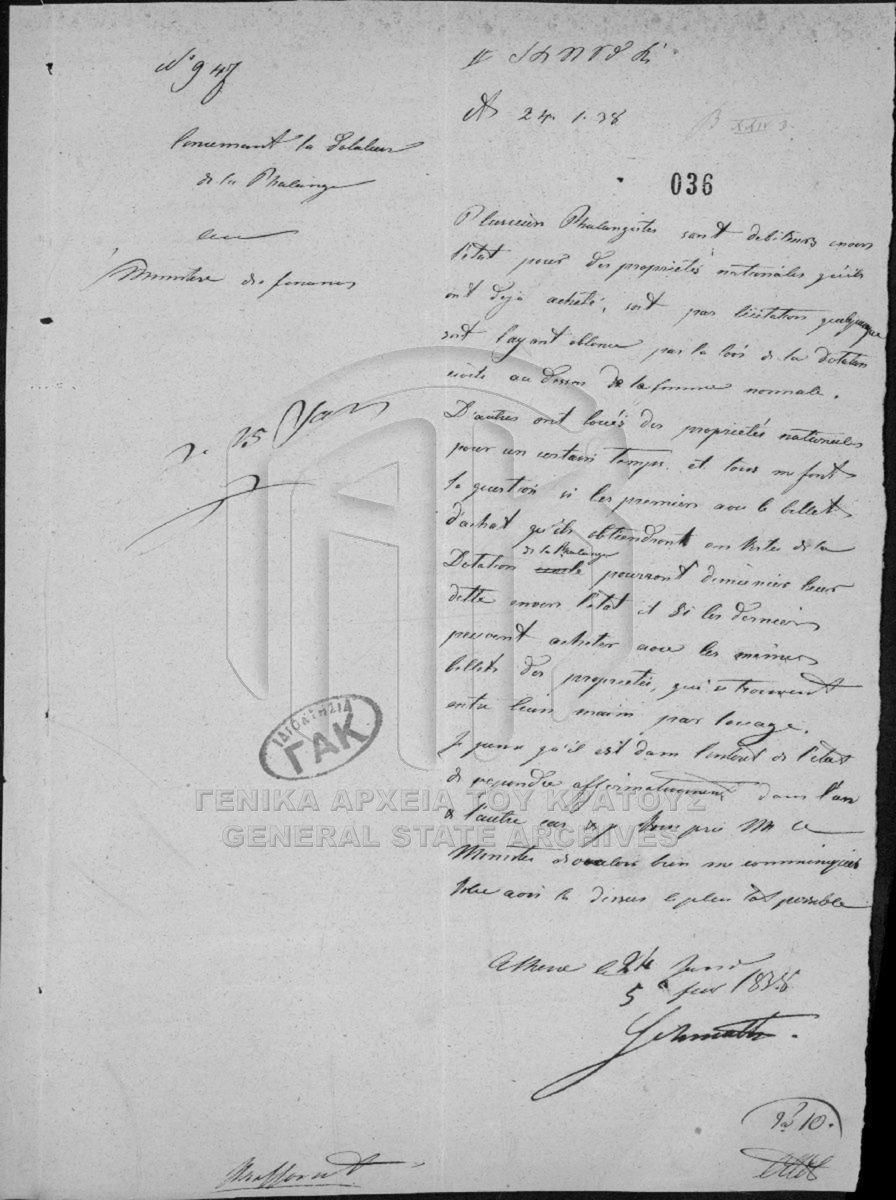 No 947
24. 1. 38
036
Concernant la Dotation
de la Phalange
au
Ministère des finances
25 Jan
Plusieurs Phalangistes sont debiteurs envers
l'état pour des propriétés nationales qu'ils
ont dejà acheté, soit par licitation
soit l'ayant obtenu par la loi de la Dotation
au dessus de la somme normale.
D'autres ont loués des propriétés nationales
pour un certain temps. et tous me font
la question si les premiers avec le billet
d'achat qu'ils obtiendront en vertu de la
Dotation de la Phalange pourront diminuer leur
dette envers l'état et si les derniers
peuvent acheter avec les mêmes
billets des propriétés, qui se trouvent
entre leurs mains par louage.
Je pense qu'il est dans l'interet de l'état
de repondre affirmativement dans l'un
& l'autre cas & je Vous prie Mr le
Ministre de vouloir bien me communiquer
Votre avis là dessus le plus tôt possible
Athene le 24 Janv
5 fevr 1838
ΙΔΙΟΚΤΗΣΙΑ
ΓΑΚ
ΓΕΝΙΚΑ ΑΡΧΕΙΑ ΤΟΥ ΚΡΑΤΟΥΣ
GENERAL STATE ARCHIVES
10.